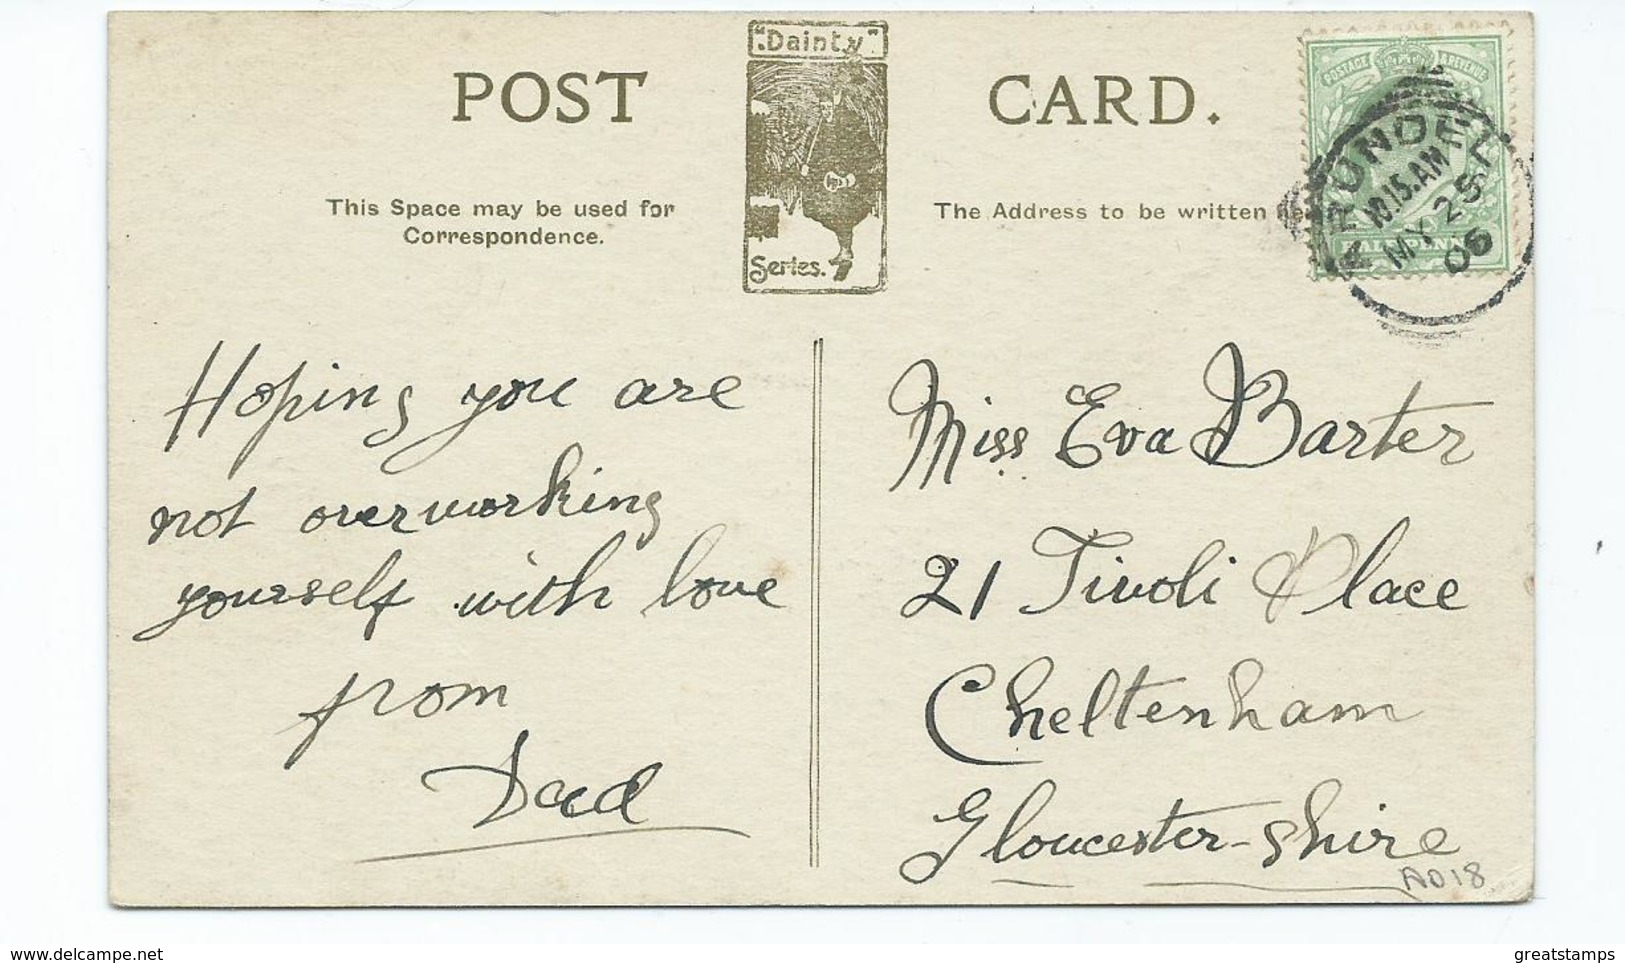 "Dainty"
Series.
POST CARD.
This Space may be used for
Correspondence.
The Address to be written here
POSTAGE & REVENUE
HALFPENNY
ARUNDEL
10.15.AM
MY 25
06
Hoping you are
not overworking
yourself with love
from
Dad
Miss Eva Barter
21 Tivoli Place
Cheltenham
Gloucester-shire
AD18
www.delcampe.net
greatstamps